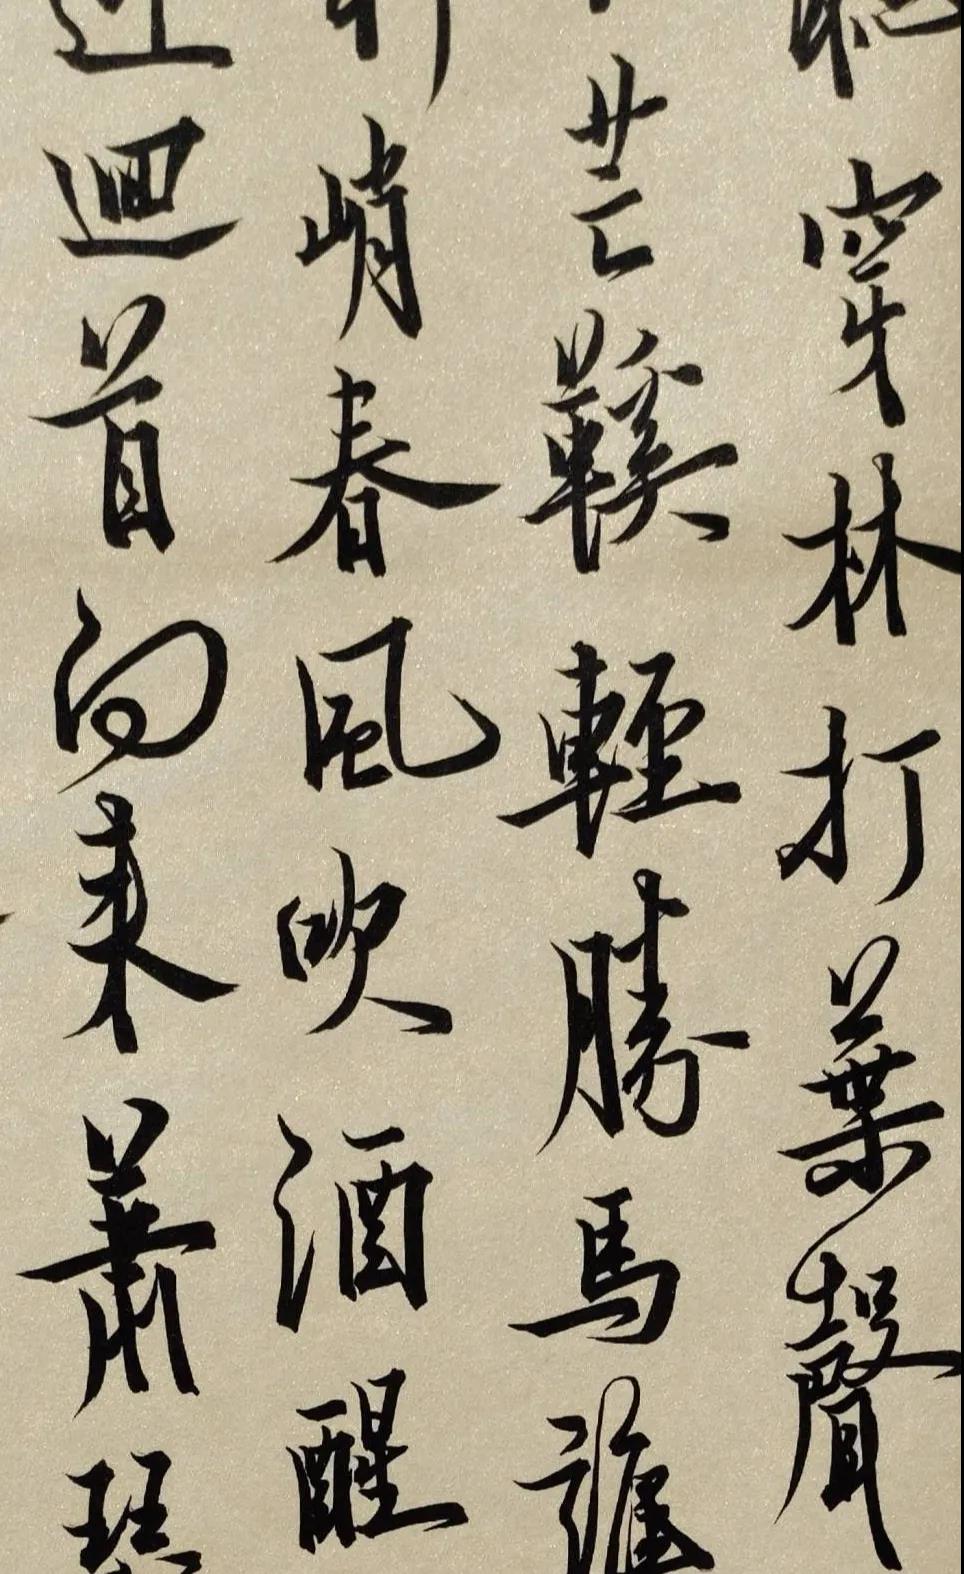 穿林打葉聲
芒鞵輕勝馬誰
峭春風吹酒醒
迴首向来蕭瑟